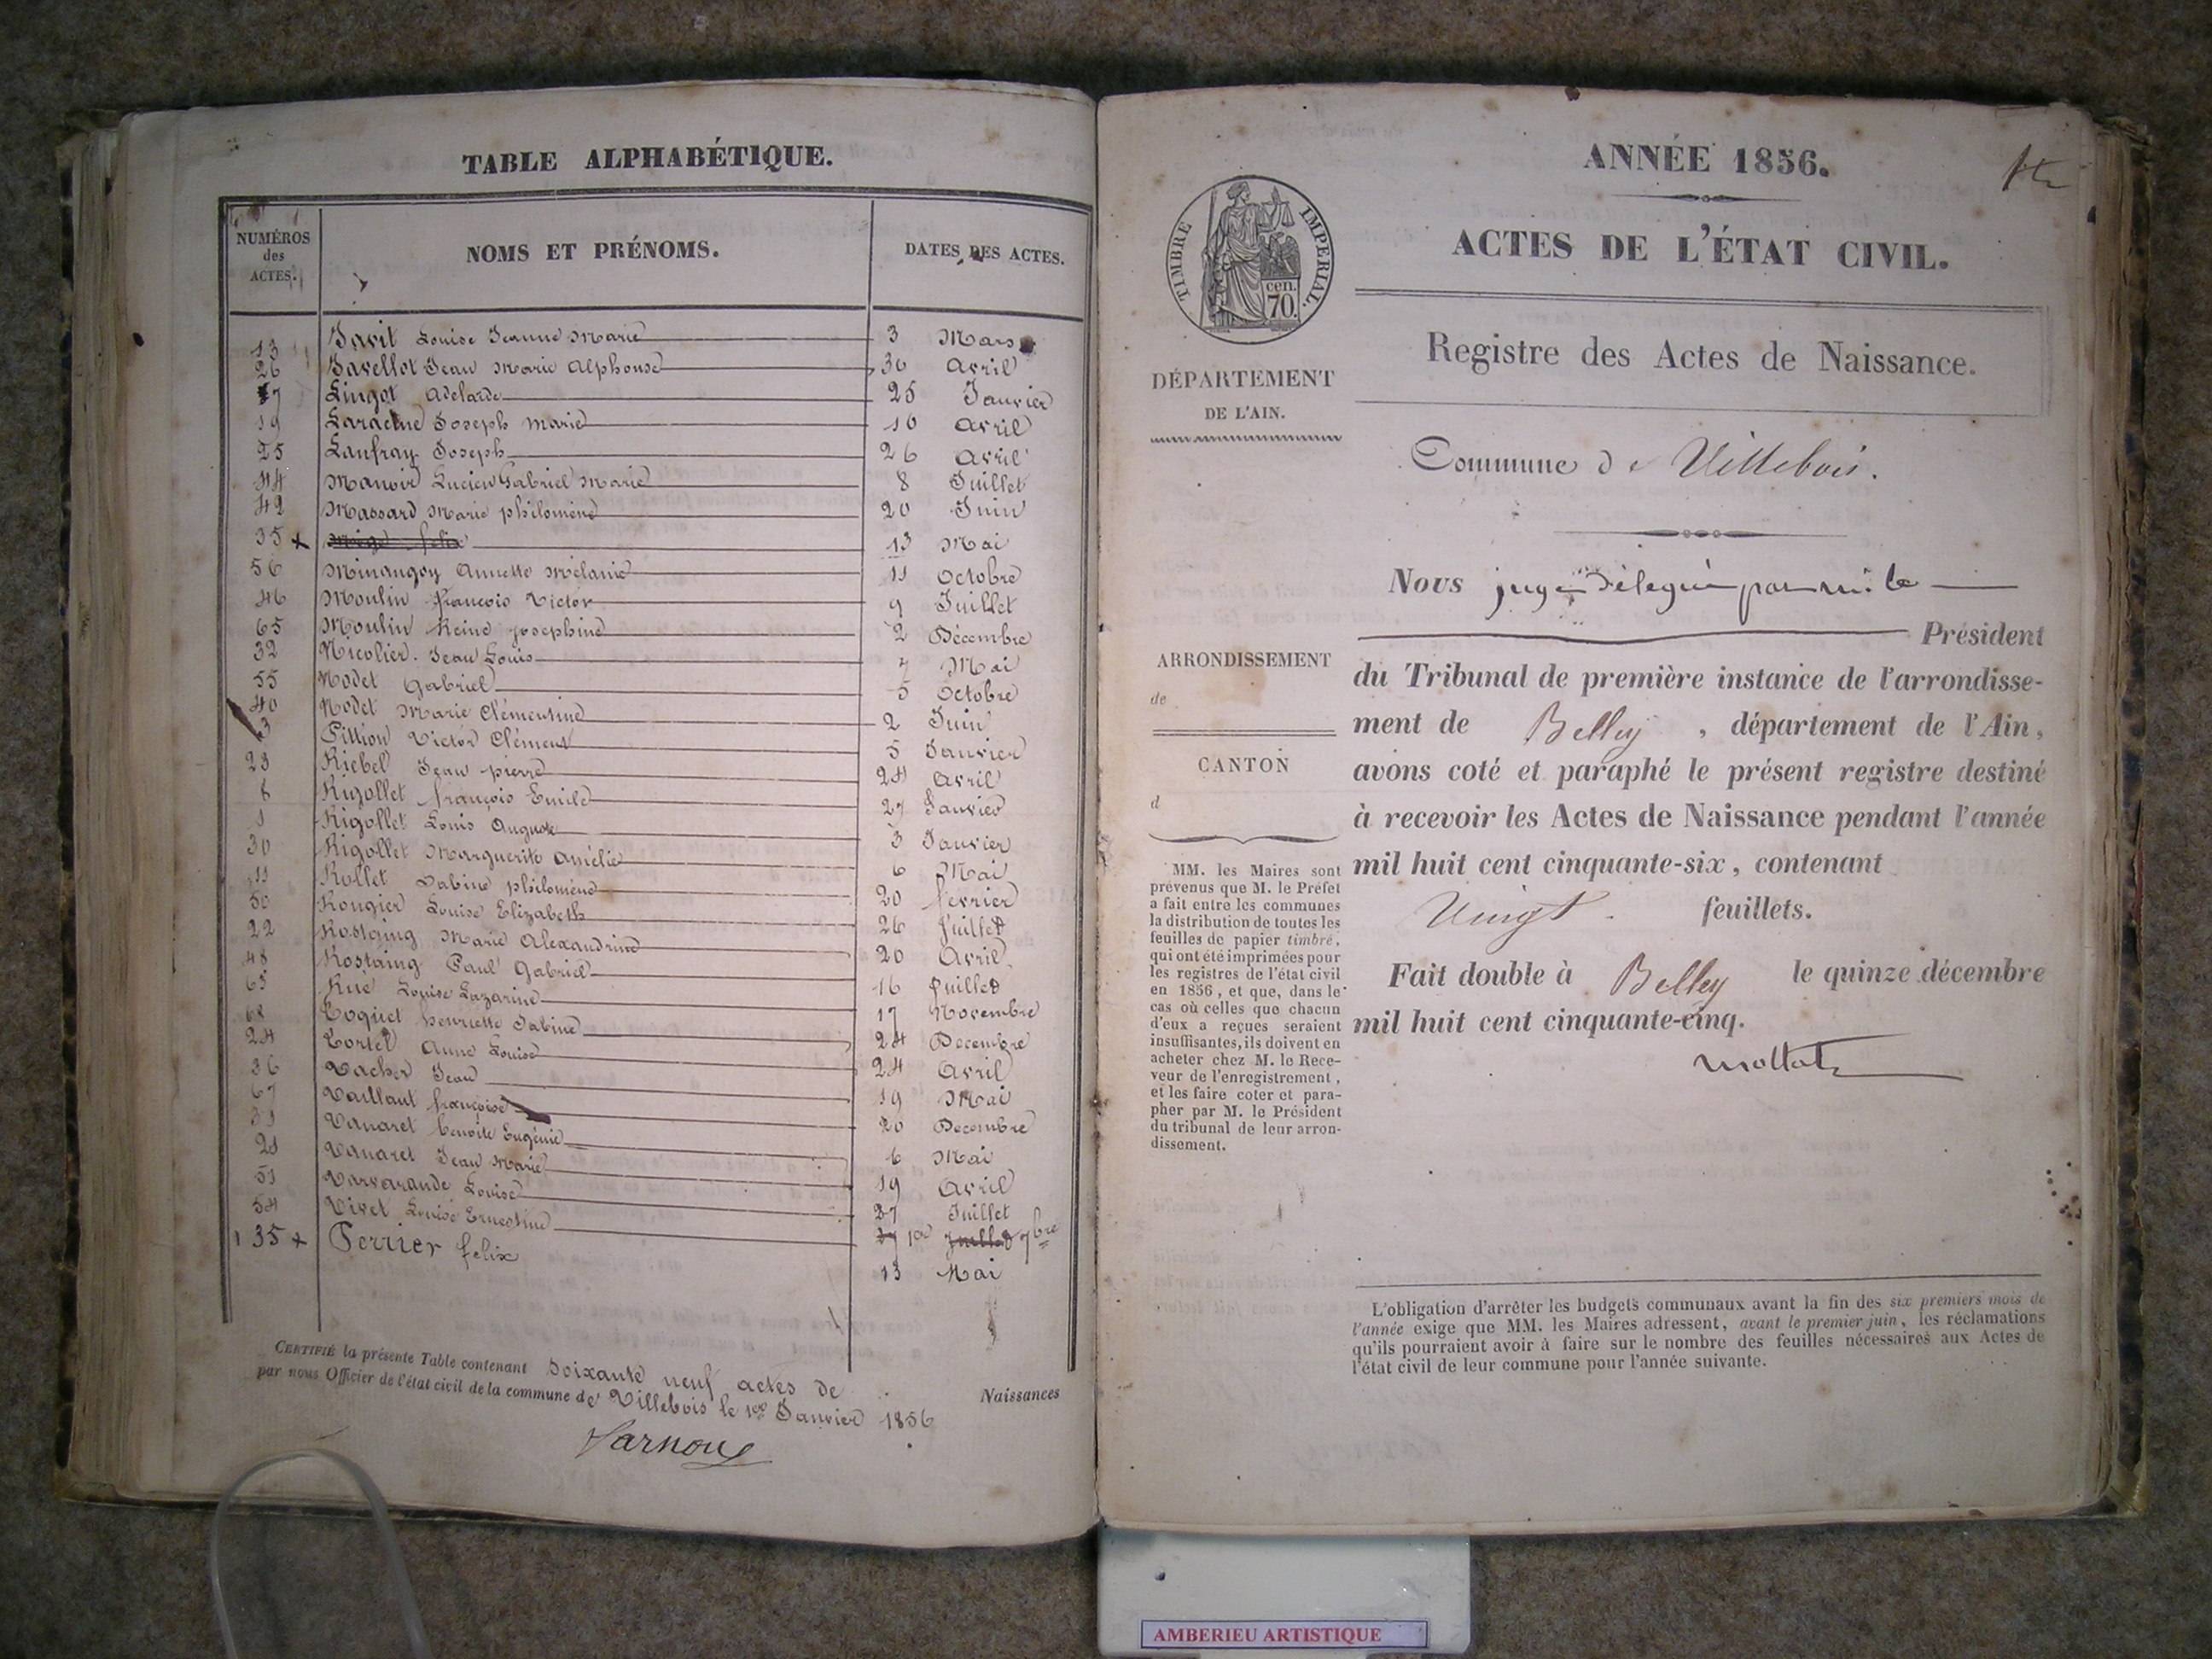 TABLE ALPHABÉTIQUE.
NUMÉROS des ACTES. NOMS ET PRÉNOMS. DATES DES ACTES.
13 Javit Louise Jeanne Marie 3 Mars
26 Javellot Jean Marie Alphonse 30 Avril
7 Lingot Adelarde 25 Janvier
19 Joseph Marie 10 Avril
25 Lanfray Joseph 26 Avril
44 Manoir Lucien Gabriel Marie 8 Juillet
42 Massard Marie philomène 20 Juin
35 x felix 13 Mai
56 Minangoy Annette Mélanie 11 Octobre
46 Moulin françois Victor 9 Juillet
65 Moulin Reine josephine 2 Décembre
32 Nicolier Jean Louis 7 Mai
55 Nodet Gabriel 5 Octobre
40 Nodet Marie Clémentine 2 Juin
3 Pittion Victor Clément 5 Janvier
23 Riebel Jean pierre 24 Avril
8 Rigollet françois Emile 27 Janvier
1 Rigollet Louis Auguste 3 Janvier
30 Rigollet Marguerite Amélie 6 Mai
11 Rollet Sabine philomène 20 fevrier
50 Rougier Louise Elizabeth 26 Juillet
22 Rostaing Marie Alexandrine 20 Avril
48 Rostaing Paul Gabriel 16 Juillet
63 Rué Louise Lazarine 17 Novembre
68 Toquet henriette Sabine 24 Decembre
24 Tortel Anne Louise 24 Avril
36 Vacher Jean 19 Mai
67 Vaillant françoise 20 Decembre
31 Vanaret benoite Eugénie 6 Mai
21 Vanaret Jean Marie 19 Avril
51 Varvarande Louise 27 Juillet
54 Vivet Louise Ernestine 27 1er Juillet 7bre
35 x Perrier felix 13 Mai
CERTIFIÉ la présente Table contenant Soixante neuf actes de Naissances
par nous Officier de l'état civil de la commune de Villebois le 1er Janvier 1856
Sarnoux
ANNÉE 1856.
ACTES DE L'ÉTAT CIVIL.
TIMBRE IMPERIAL.
cen.
70.
Registre des Actes de Naissance.
DÉPARTEMENT
DE L'AIN.
Commune de Villebois.
Nous juge délégué par mr. le
Président
ARRONDISSEMENT
de
CANTON
d
du Tribunal de première instance de l'arrondisse-
ment de Belley, département de l'Ain,
avons coté et paraphé le présent registre destiné
à recevoir les Actes de Naissance pendant l'année
mil huit cent cinquante-six, contenant
Vingt feuillets.
Fait double à Belley le quinze décembre
mil huit cent cinquante-cinq.
MM. les Maires sont
prévenus que M. le Préfet
a fait entre les communes
la distribution de toutes les
feuilles de papier timbré,
qui ont été imprimées pour
les registres de l'état civil
en 1856, et que, dans le
cas où celles que chacun
d'eux a reçues seraient
insuffisantes, ils doivent en
acheter chez M. le Rece-
veur de l'enregistrement,
et les faire coter et para-
pher par M. le Président
du tribunal de leur arron-
dissement.
L'obligation d'arrêter les budgets communaux avant la fin des six premiers mois de
l'année exige que MM. les Maires adressent, avant le premier juin, les réclamations
qu'ils pourraient avoir à faire sur le nombre des feuilles nécessaires aux Actes de
l'état civil de leur commune pour l'année suivante.
AMBERIEU ARTISTIQUE